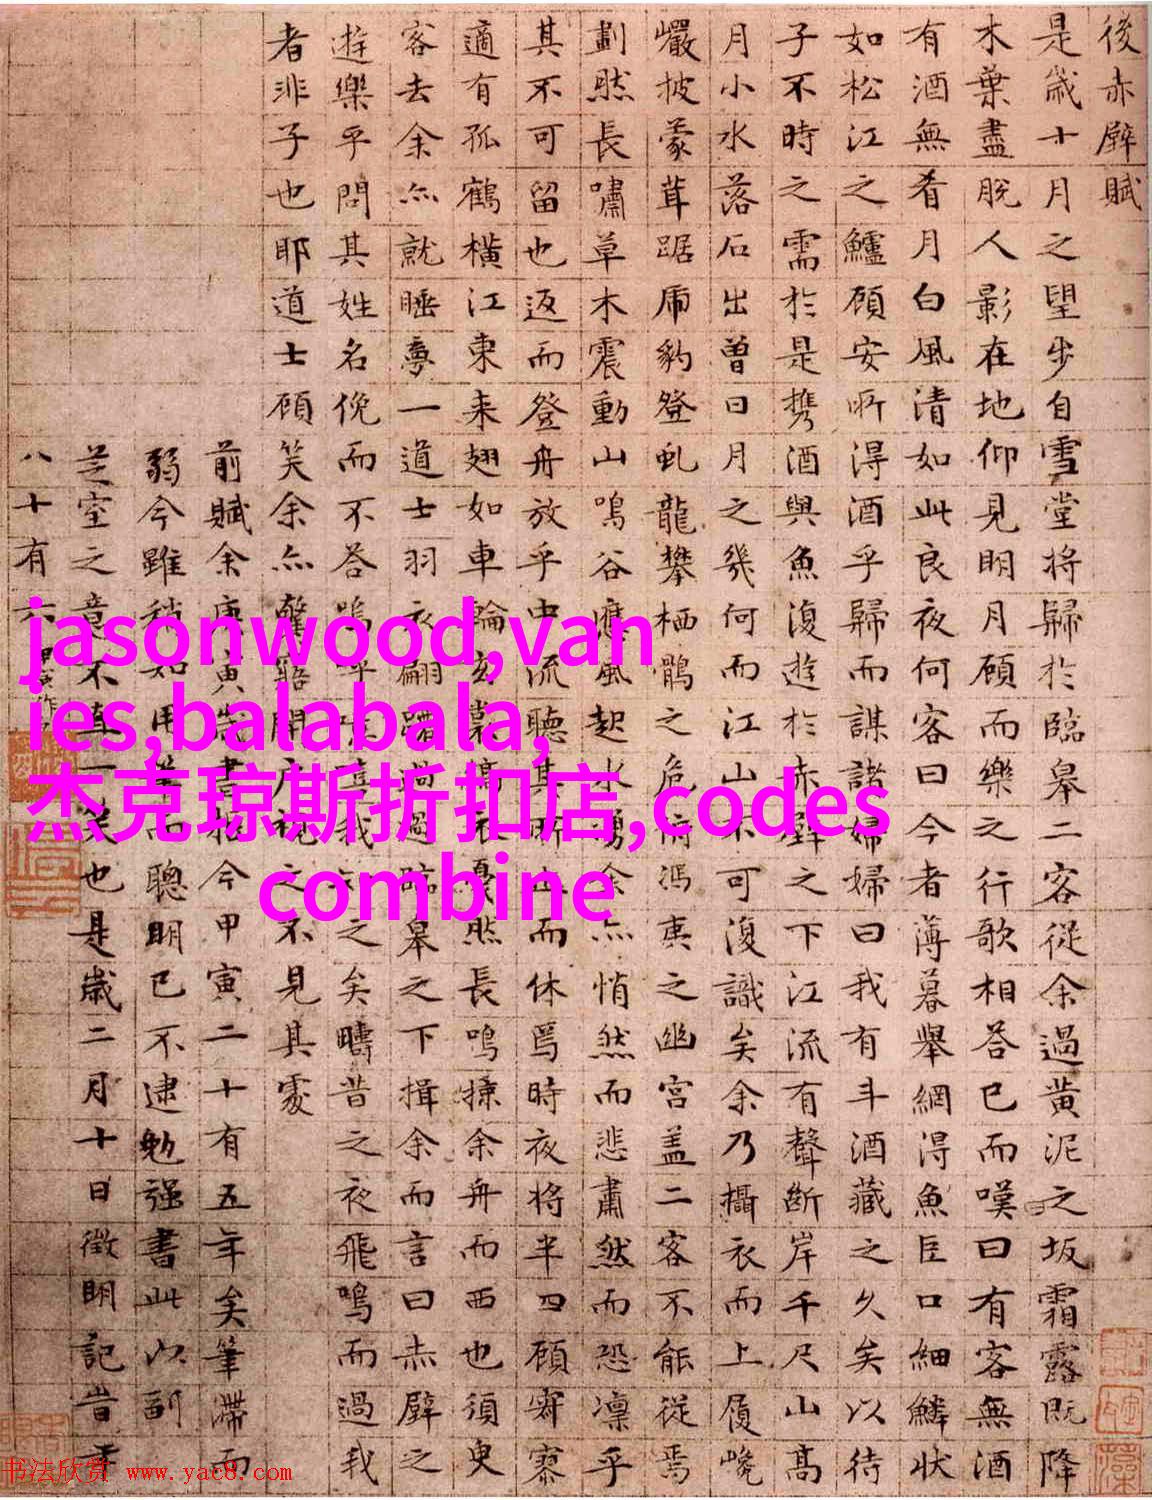 後赤壁賦
是歲十月之望步自雪堂將歸於臨皋二客從余過黃泥之坂霜露既降
木葉盡脫人影在地仰見明月顧而樂之行歌相答已而嘆曰有客無酒
有酒無肴月白風清如此良夜何客曰今者薄暮舉網得魚巨口細鱗狀
如松江之鱸顧安所得酒乎歸而謀諸婦婦曰我有斗酒藏之久矣以待
子不時之需於是攜酒與魚復遊於赤壁之下江流有聲斷岸千尺山高
月小水落石出曾日月之幾何而江山不可復識矣余乃攝衣而上履巉
巖披蒙茸踞虎豹登虬龍攀栖鶻之危俯馮夷之幽宮蓋二客不能從焉
劃然長嘯草木震動山鳴谷應風起水湧余亦悄然而悲肅然而恐凜乎
其不可留也返而登舟放乎中流聽其所止而休焉時夜將半四顧寂寥
適有孤鶴橫江東來翅如車輪玄裳縞衣戛然長鳴掠余舟而西也須臾
客去余亦就睡夢一道士羽衣翩躚過臨皋之下揖余而言曰赤壁之
遊樂乎問其姓名俛而不答嗚呼噫嘻我知之矣疇昔之夜飛鳴而過我
者非子也耶道士顧笑余亦驚寤開戶視之不見其處
前賦余庚寅歲書抵今甲寅二十有五年矣筆滯而
弱今雖稍如用筆而聰明已不逮勉強書此以副
芝室之意不直一笑也是歲二月十日徵明記昔年
八十有六
jasonwood,van
ies,balabala,
杰克琼斯折扣店,codes
combine
书法欣赏 www.yac8.com